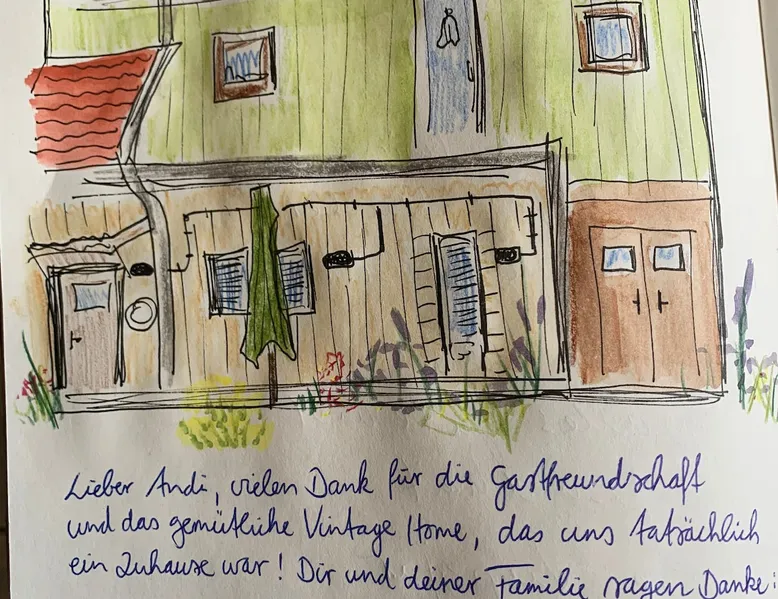 Lieber Andi, vielen Dank für die Gastfreundschaft
und das gemütliche Vintage Home, das uns tatsächlich
ein Zuhause war! Dir und deiner Familie sagen Danke: